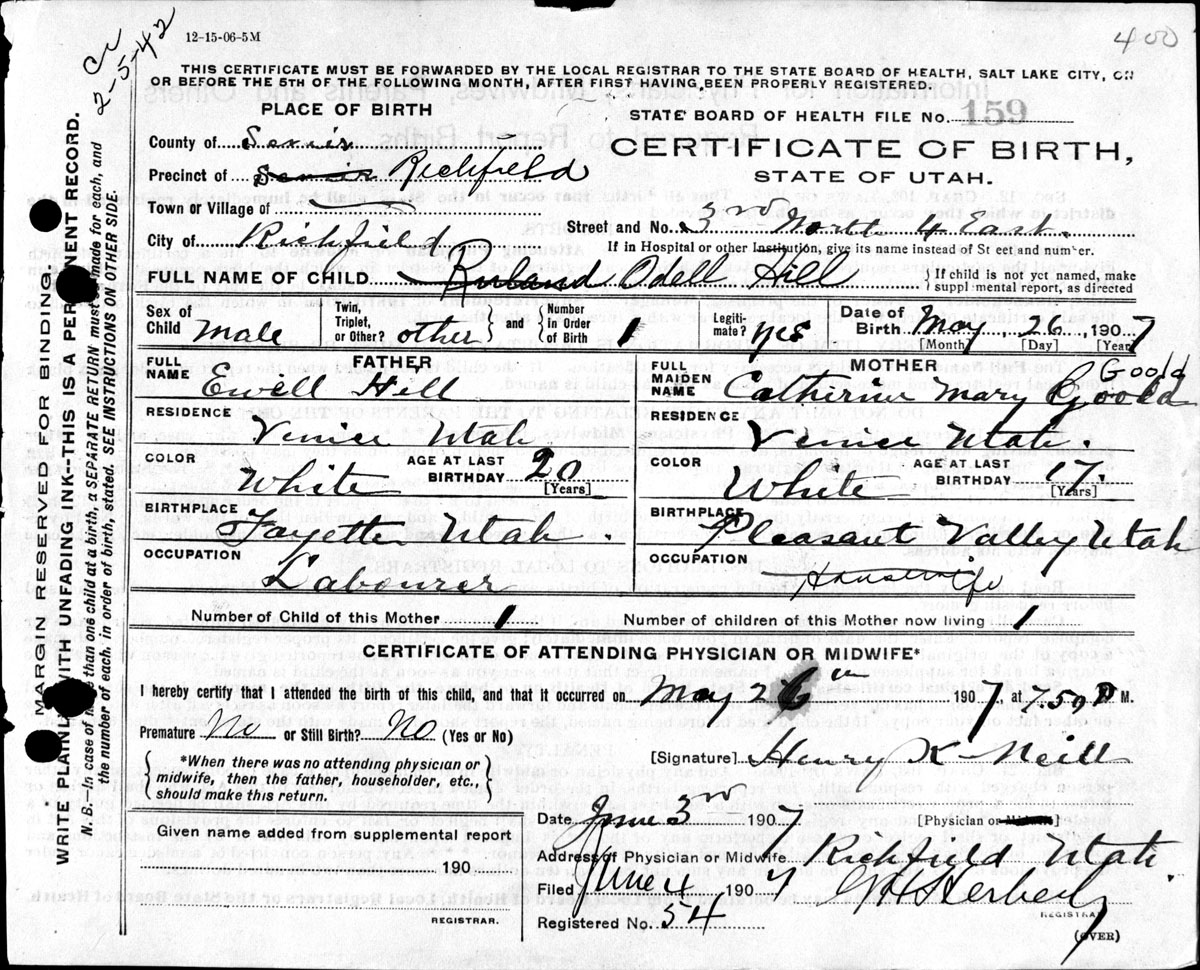 12-15-06-5M
400
Cr
2-5-42
THIS CERTIFICATE MUST BE FORWARDED BY THE LOCAL REGISTRAR TO THE STATE BOARD OF HEALTH, SALT LAKE CITY, ON
OR BEFORE THE 5TH OF THE FOLLOWING MONTH, AFTER FIRST HAVING BEEN PROPERLY REGISTERED.
PLACE OF BIRTH
STATE BOARD OF HEALTH FILE No. 159
County of Sevier
CERTIFICATE OF BIRTH,
Precinct of Sevier Richfield
STATE OF UTAH.
Town or Village of
Street and No. 3rd North 4 East.
City of Richfield
If in Hospital or other Institution, give its name instead of St eet and number.
FULL NAME OF CHILD Odell Hill
{ If child is not yet named, make suppl mental report, as directed
Sex of Child Male
Twin, Triplet, or Other? other } and { Number in Order of Birth 1
Legiti-mate? yes
Date of Birth May 26 1907
[Month] [Day] [Year]
FATHER
FULL NAME Ewell Hill
RESIDENCE Venice Utah
COLOR White AGE AT LAST BIRTHDAY 20 [Years]
BIRTHPLACE Fayette Utah.
OCCUPATION Labourer
MOTHER Goold
FULL MAIDEN NAME Catherine Mary Goold
RESIDENCE Venice Utah.
COLOR White AGE AT LAST BIRTHDAY 17. [Years]
BIRTHPLACE Pleasant Valley Utah
OCCUPATION Housewife
Number of Child of this Mother 1 Number of children of this Mother now living 1
CERTIFICATE OF ATTENDING PHYSICIAN OR MIDWIFE*
I hereby certify that I attended the birth of this child, and that it occurred on May 26th 1907 at 7 50 P M.
Premature No or Still Birth? No (Yes or No)
[Signature] Henry K Neill
{ *When there was no attending physician or midwife, then the father, householder, etc., should make this return. }
Date June 3rd 1907 [Physician or Midwife]
Given name added from supplemental report
190
REGISTRAR.
Address of Physician or Midwife Richfield Utah
Filed June 4 1907
REGISTRAR
Registered No. 54
(OVER)
MARGIN RESERVED FOR BINDING
WRITE PLAINLY WITH UNFADING INK-THIS IS A PERMANENT RECORD.
N. B.—In case of more than one child at a birth, a SEPARATE RETURN must be made for each, and
the number of each, in order of birth, stated. SEE INSTRUCTIONS ON OTHER SIDE.